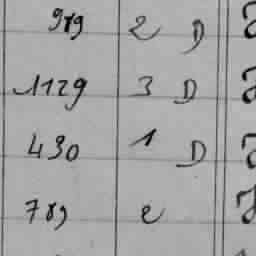 989 2 D
1129 3 D
430 1 D
789 2